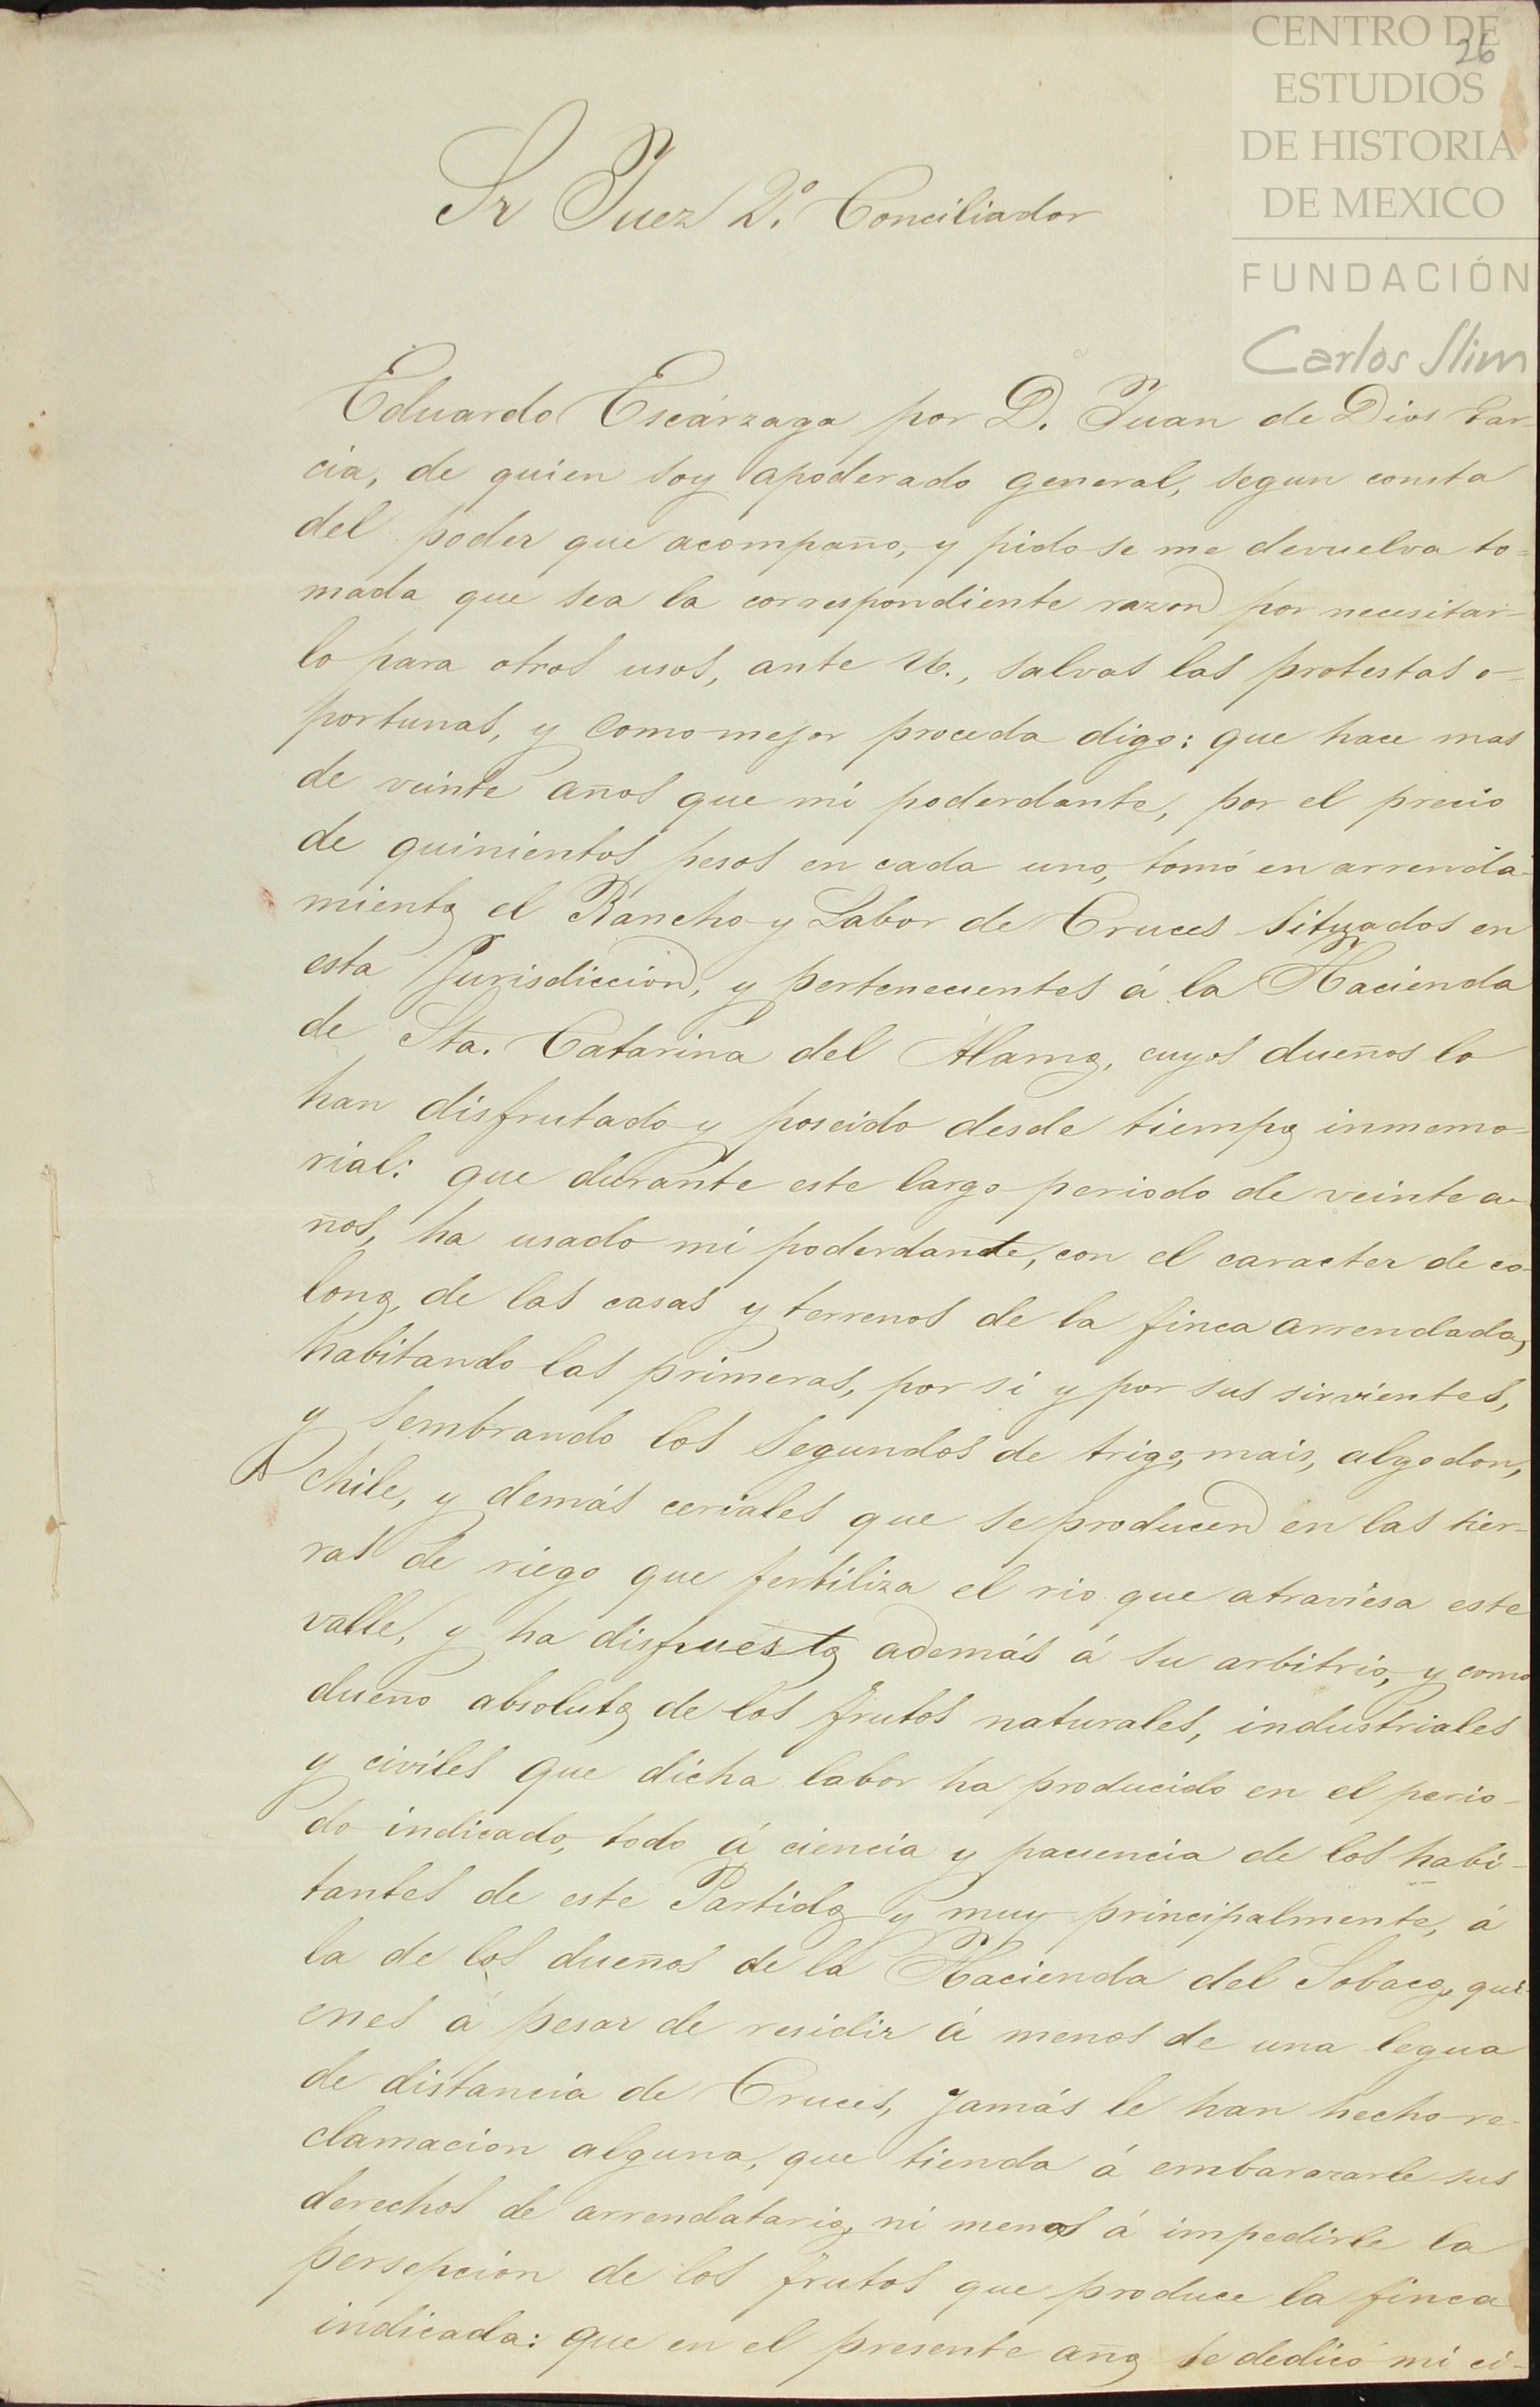 CENTRO DE
26
ESTUDIOS
DE HISTORIA
DE MEXICO
FUNDACIÓN
Carlos Slim
Sr Juez 2.º Conciliador
Eduardo Escárzaga por D. Juan de Dios Gar-
cia, de quien soy apoderado general, segun consta
del poder que acompaño, y pido se me devuelva to=
mada que sea la correspondiente razon por necesitar-
lo para otros usos, ante U., salvas las protestas o-
portunas, y como mejor proceda digo: que hace mas
de veinte años que mi poderdante, por el precio
de quinientos pesos en cada uno, tomó en arrenda-
miento el Rancho y Labor de Cruces situados en
esta Jurisdiccion, y pertenecientes á la Hacienda
de Sta. Catarina del Alamo, cuyos dueños lo
han disfrutado y poseido desde tiempo inmemo-
rial: que durante este largo periodo de veinte a-
ños, ha usado mi poderdante, con el caracter de co-
lono, de las casas y terrenos de la finca arrendada,
habitando las primeras, por si y por sus sirvientes,
y sembrando los segundos de trigo, mais, algodon,
chile, y demás ceriales que se producen en las tier-
ras de riego que fertiliza el rio que atraviesa este
valle, y ha dispuesto además á su arbitrio, y como
dueño absoluto de los frutos naturales, industriales
y civiles que dicha labor ha producido en el perio-
do indicado, todo á ciencia y paciencia de los habi-
tantes de este Partido y muy principalmente, á
la de los dueños de la Hacienda del Sobaco, qui-
enes á pesar de residir á menos de una legua
de distancia de Cruces, jamás le han hecho re-
clamacion alguna, que tienda á embarazarle sus
derechos de arrendatario, ni menos á impedirle la
persepcion de los frutos que produce la finca
indicada: que en el presente año se dedicó mi ci-